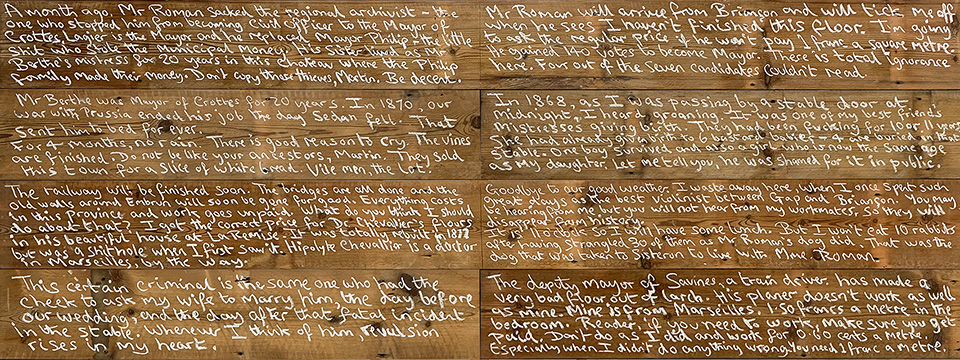 A month ago Mr Roman sacked the regional archivist - the
one who stopped him from becoming Civil Officer to the Mayor of
Crottes. Lagier is the Mayor and he replaced Mayor Philip - the little
shit who stole the municipal money. His sister lived as Mr
Berthe's mistress for 20 years in this Chateau where the Philip
family made their money. Don't copy those thieves, Martin. Be decent.
Mr Roman will arrive from Briançon and will tick me off
when he sees I haven't finished this floor. I'm going
to ask the regular price if he won't pay 1 franc a square metre.
he gained 140 votes to become Mayor. There is total ignorance
here. Four out of the seven candidates couldn't read.
Mr Berthe was Mayor of Crottes for 20 years. In 1870, our
war with Prussia ended his job the day Sedan fell. That
sent him to bed forever.
For 4 months, no rain. There is good reason to cry. The vines
are finished. Do not be like your ancestors, Martin. They sold
this town for a slice of white bread. Vile men, the lot.
In 1868, as I was passing by a stable door at
Midnight, I heard groaning. It was one of my best friend's
mistresses giving birth. They had been fucking for four years.
She had already given birth to six bastards, of which are buried in the
stable. One boy survived and was a guy who is now the same age
as my daughter. Let me tell you, he was shamed for it in public.
The railway will be finished soon. The bridges are all done and the
old walls around Embrun will soon be gone for good. Everything costs
in this Province and works goes unpaid. What do you think I should
do about that? I got the correct price for Dr Chevallier's floors
in his beautiful house at Lacremise. It is totally rebuilt in 1878
but was a shithole when I first saw it. Hipolyte Chevallier is a doctor
at Marseilles, by the way.
Goodbye to our good weather. I waste away here, when I once spent such
great days as the best violinist between Gap and Briançon. You may
be hearing from me but you will not hear from my bandmates, as they will
disappear from history.
It is gone 11 o'clock so I can have some lunch. But I won't eat 10 rabbits
after having strangled 30 of them as Mr Roman's dog did. That was the
dog that was taken to Sisteron to live with Mme Roman.
This certain criminal is the same one who had the
cheek to ask my wife to marry him, the day before
our wedding, and the day after that fatal incident
in the stable. Whenever I think of him, revulsion
rises in my heart.
The deputy mayor of Savines, a train driver, has made a
very bad floor out of larch. His planer doesn't work as well
as mine. Mine is from Marseilles, 1.50 francs a metre in the
bedroom. Reader, if you need to work, make sure you get
paid. Don't do as I did and work for 0.10 cents a metre.
Especially when I didn't do anything wrong. You need 1 franc a metre.